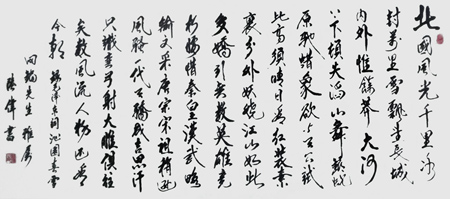 北國風光千里冰
封萬里雪飄望長城
內外惟餘莽莽大河
上下頓失滔滔山舞銀蛇
原馳蠟象欲與天公試
比高須晴日看紅裝素
裹分外妖嬈江山如此
多嬌引無數英雄競
折腰惜秦皇漢武略
輸文采唐宗宋祖稍遜
風騷一代天驕成吉思汗
只識彎弓射大雕俱往
矣數風流人物還看
今朝 毛澤東詞沁園春雪
先生雅屬
偉書